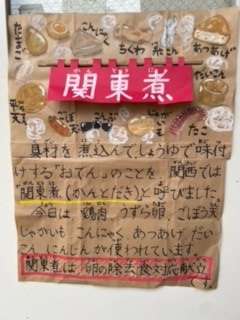 たまご
こんにゃく
ちくわ
あつあげ
だいこん
関東煮
平天
ごぼ天
たこ
具材を煮込んで、しょうゆで味付
けする"おでん"のことを 関西では
関東煮(かんとだき)と呼びました
今日は、鶏肉、うずら卵、ごぼう天
じゃがいも こんにゃく あつあげ だい
こん にんじんが使われています。
関東煮は、卵の除去食対応献立
です。